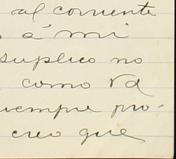 al corriente
a mi
suplico no
como Vd
siempre pro-
creo que